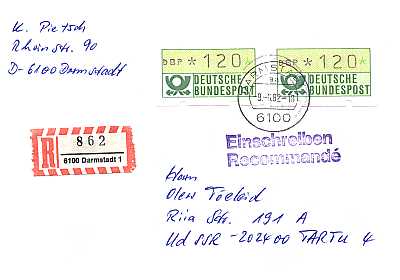 K. Pietsch
Rheinstr. 90
D-6100 Darmstadt
DBP * 120
DEUTSCHE
BUNDESPOST
DBP * 120
DEUTSCHE
BUNDESPOST
6100
R
862
6100 Darmstadt 1
Einschreiben
Recommandé
Herrn
Riia Str. 191 A
Ud SSR - 202400 TARTU 4